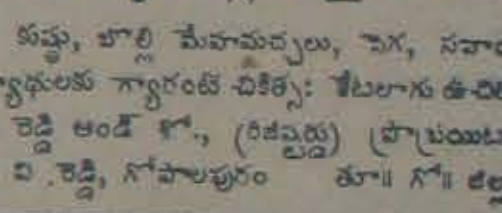 కుష్ఠు, బొల్లి మేహమచ్చలు, సెగ, సవా
వ్యాధులకు గ్యారంటీ చికిత్స: కేటలాగు ఉచిత
రెడ్డి అండ్ కో., (రిజిష్టర్డు) (ప్రొప్రయిట
వి. రెడ్డి, గోపాలపురం తూ॥ గో॥ జిల్లా